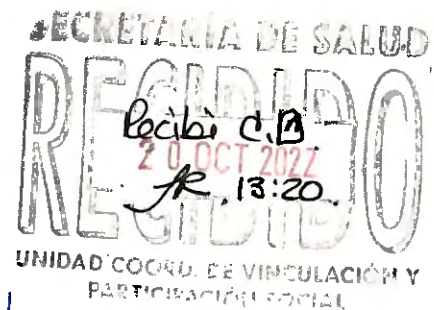 SECRETARÍA DE SALUD
RECIBIDO
Recibi C.B.
20 OCT 2022
13:20.
UNIDAD COORD. DE VINCULACIÓN Y
PARTICIPACIÓN SOCIAL